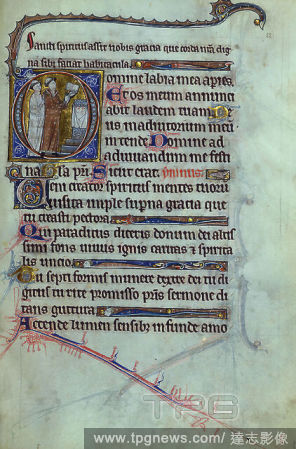 Sancti spiritus assit nobis gracia que corda nra dig
na sibi faciat habitacula
Domine labia mea apries
Et os meum annunci
abit laudem tuam De
us in adiutorium meu
intende Domine ad
adiuuandum me festi
na Gla pri Sicut erat
Ueni creator spiritus mentes tuoru
uisita imple supna gracia que
tu creasti pectora
Qui paraclitus diceris donum dei altis
simi fons uiuus ignis caritas & spirita
lis unctio
Tu septiformis munere dextre dei tu di
gitus tu rite promisso pris sermone di
tans guttura
Accende lumen sensibz infunde amo
TPG
www.tpgnews.com/ 達志影像